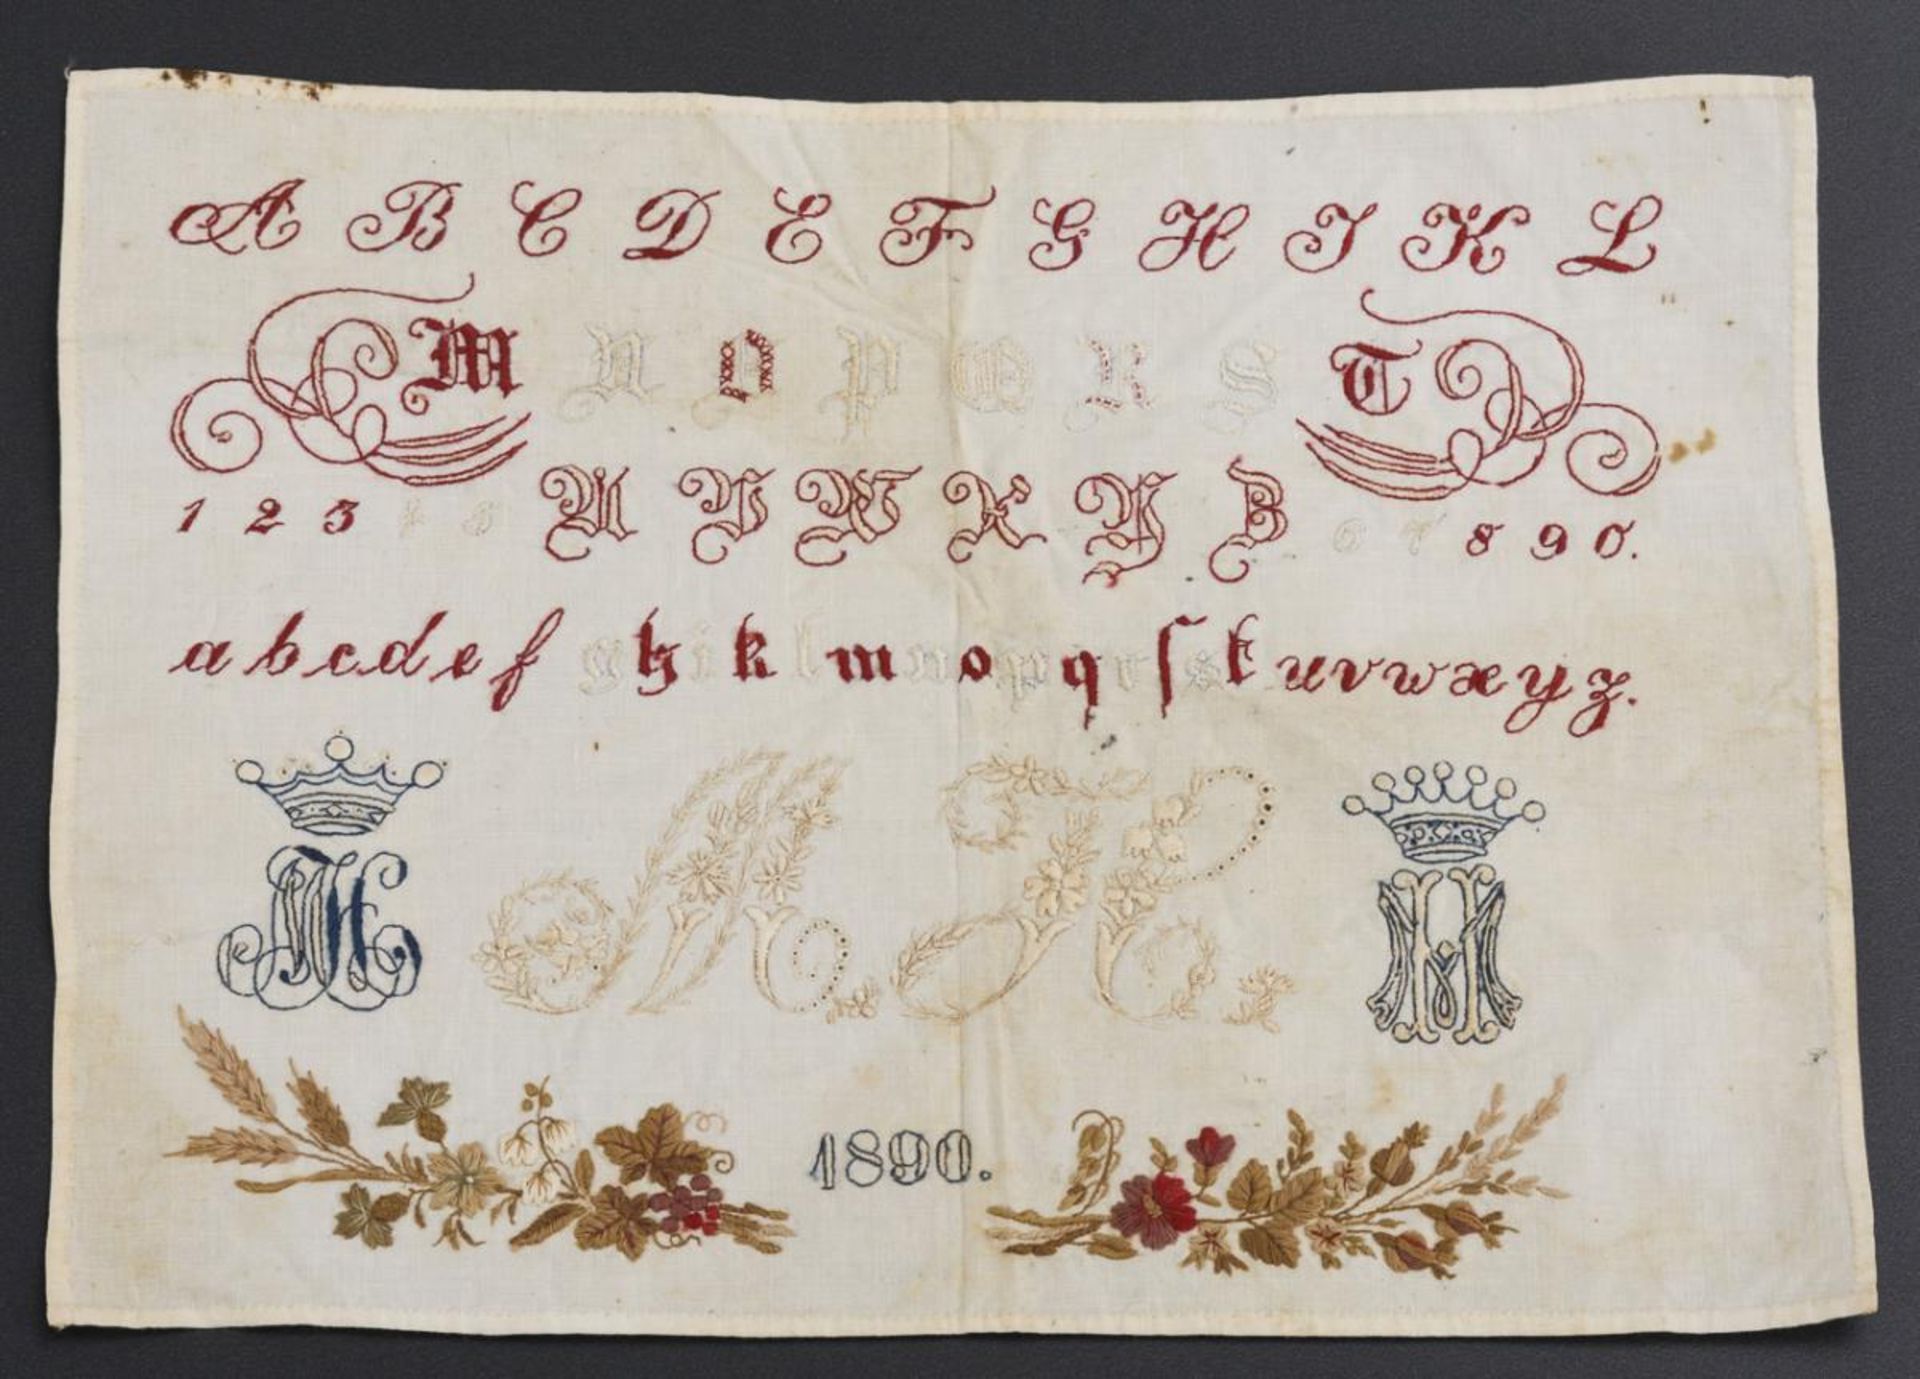 A B C D E F G H I K L
M N O P Q R S T
1 2 3 4 5 U V W X Y Z 6 7 8 9 0.
a b c d e f g h i k l m n o p q r s t u v w x y z.
A. H.
1890.